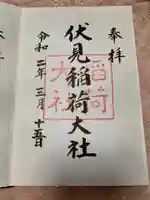 奉拝
伏見稲荷大社
令和二年三月十五日
稲荷
大社